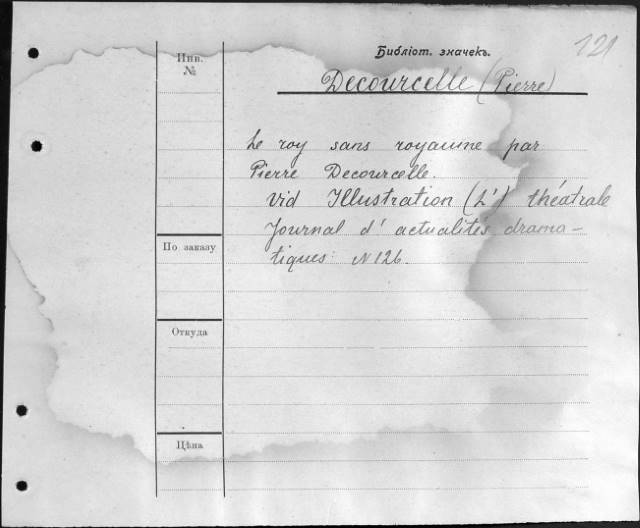 Библіот. значекъ.
121
Инв.
№
Decourcelle (Pierre)
Le roy sans royaume par
Pierre Decourcelle.
Vid Illustration (L') théâtrale
Journal d'actualités drama-
tiques N 126.
По заказу
Откуда
Цѣна